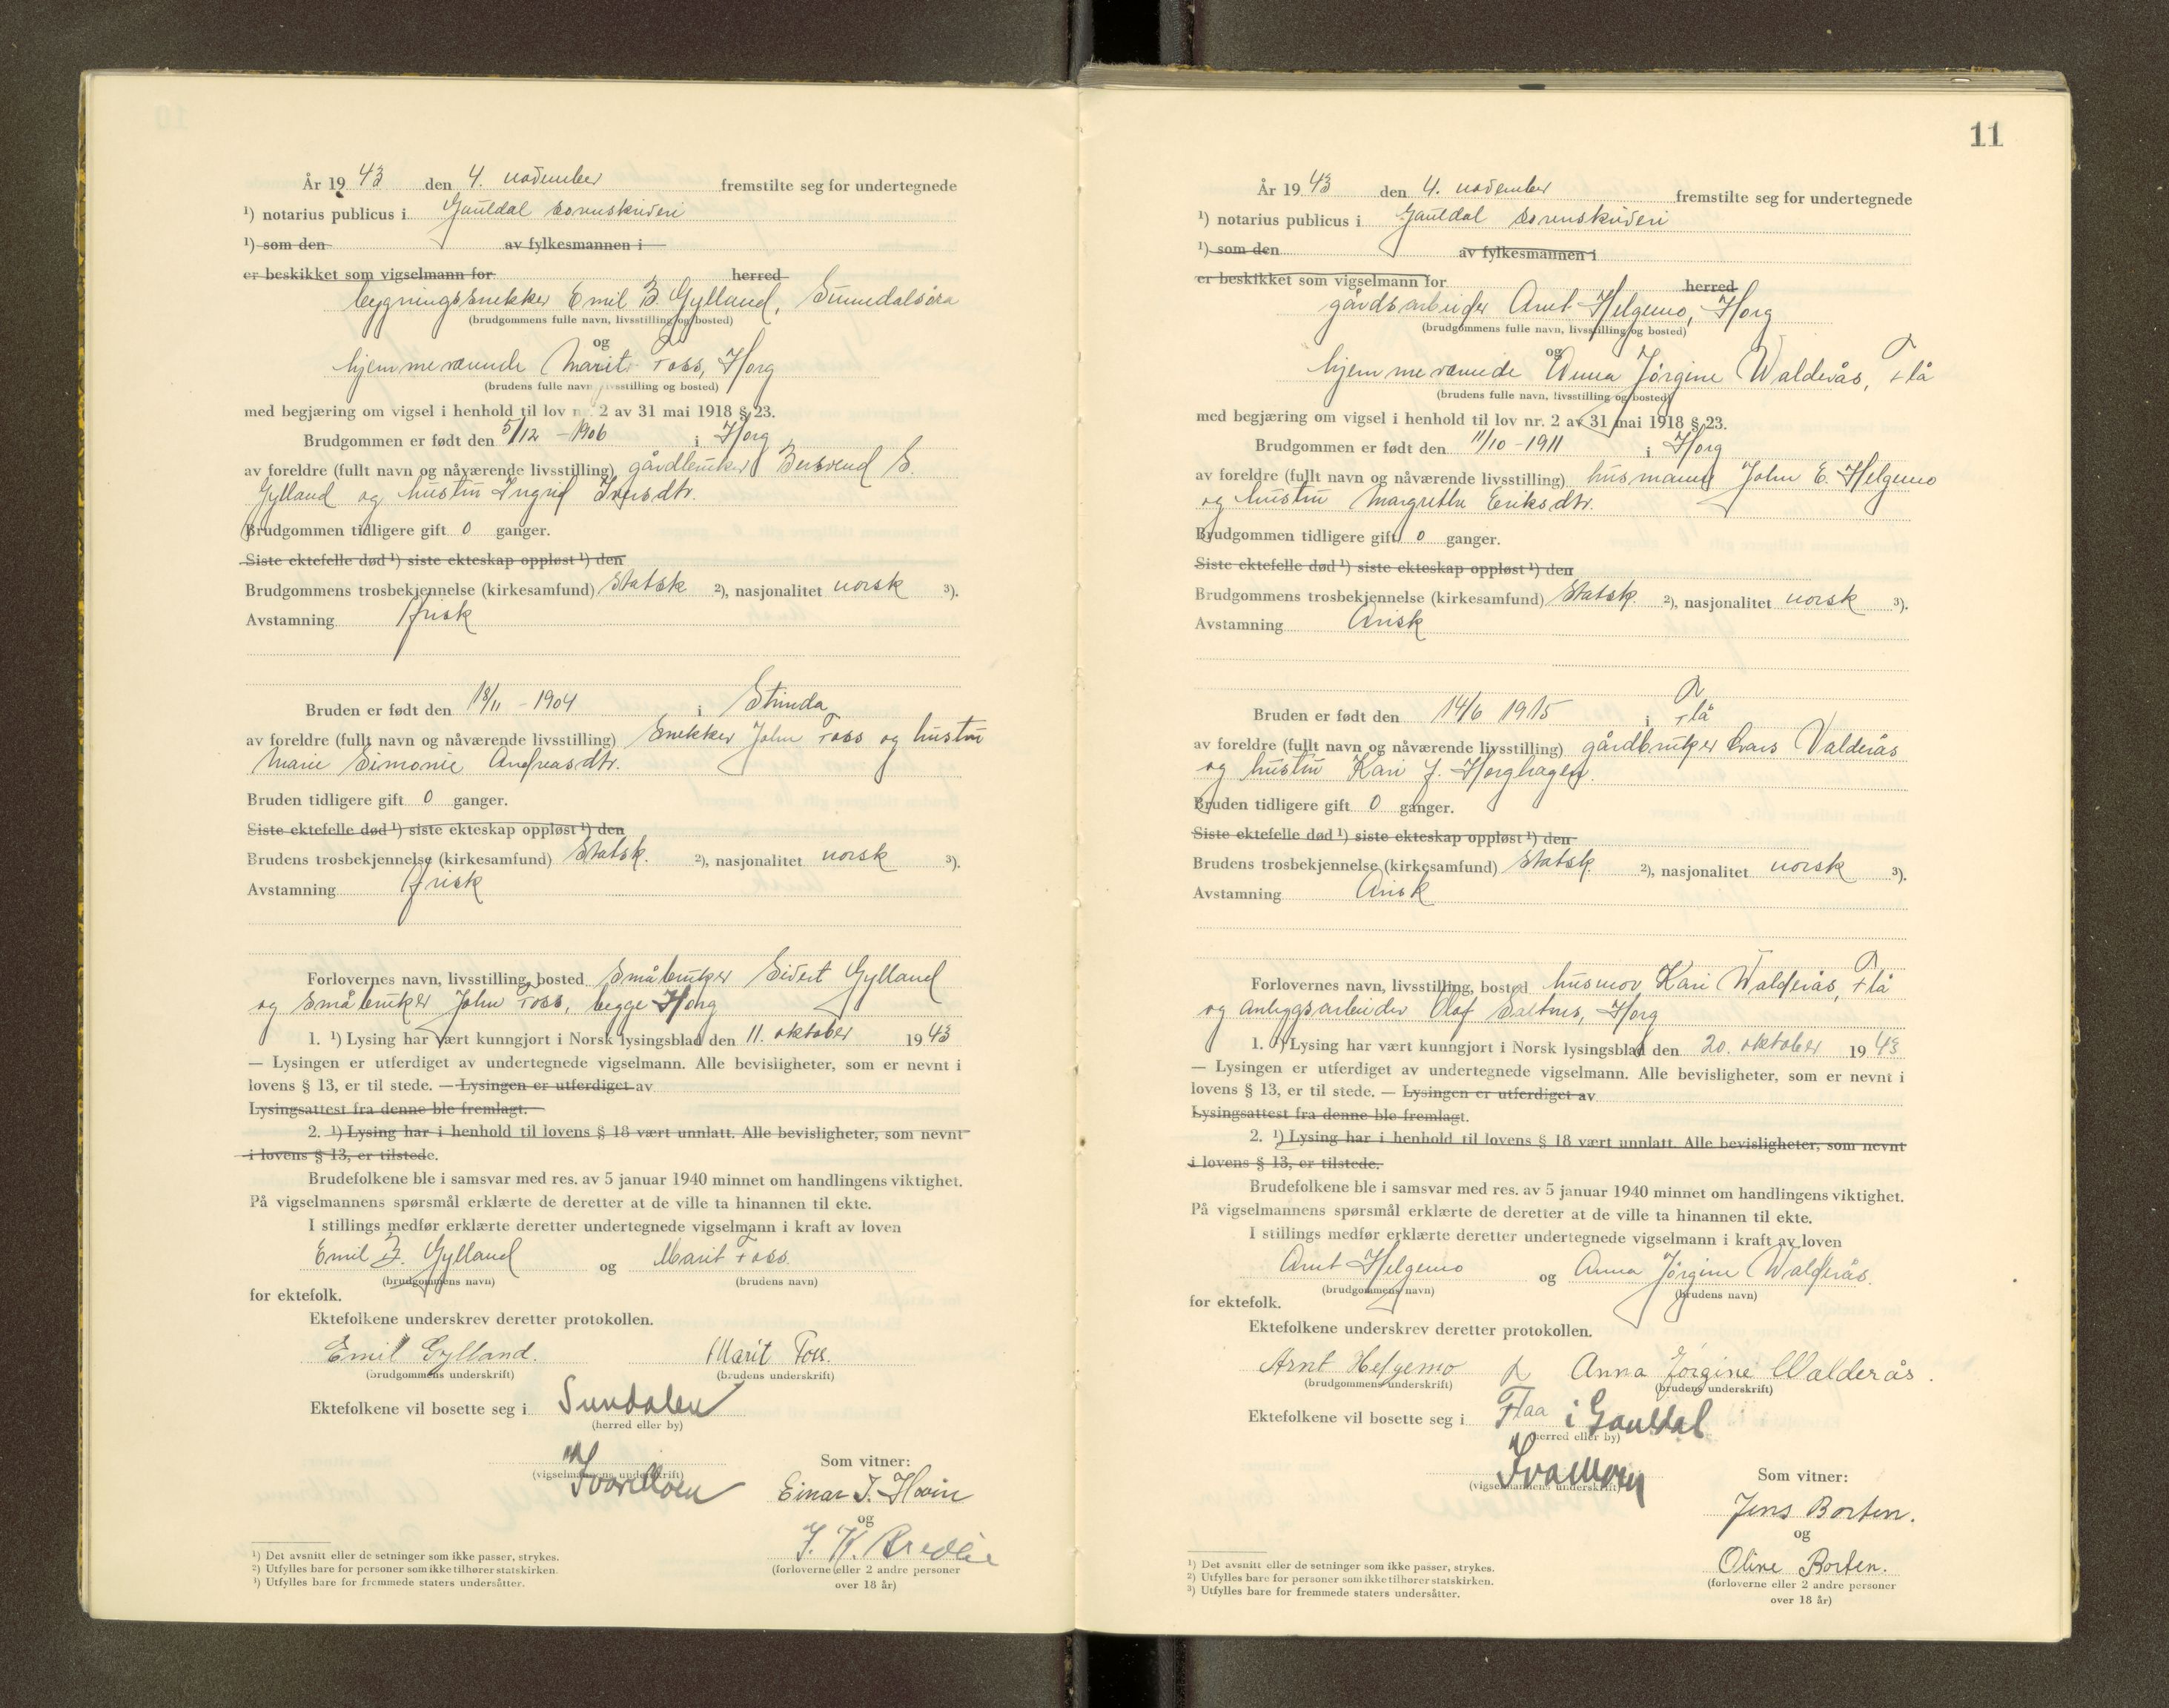 År 1943 den 4. november fremstilte seg for undertegnede
¹) notarius publicus i Gauldal sorenskriveri
¹) som den av fylkesmannen i
er beskikket som vigselmann for herred
bygningssnekker Emil B. Gylland, Sunndalsøra
(brudgommens fulle navn, livsstilling og bosted)
og
hjemmeværende Marit Foss, Horg
(brudens fulle navn, livsstilling og bosted)
med begjæring om vigsel i henhold til lov nr. 2 av 31 mai 1918 § 23.
Brudgommen er født den 5/12 - 1906 i Horg
av foreldre (fullt navn og nåværende livsstilling) gårdbruker Bersvend S.
Gylland og hustru Ingrid Iversdtr.
Brudgommen tidligere gift 0 ganger.
Siste ektefelle død ¹) siste ekteskap oppløst ¹) den
Brudgommens trosbekjennelse (kirkesamfund) Statsk ²), nasjonalitet norsk ³).
Avstamning Arisk
Bruden er født den 18/11 - 1904 i Strinda
av foreldre (fullt navn og nåværende livsstilling) Snekker John Foss og hustru
Marie Simonie Andreasdtr.
Bruden tidligere gift 0 ganger.
Siste ektefelle død ¹) siste ekteskap oppløst ¹) den
Brudens trosbekjennelse (kirkesamfund) Statsk. ²), nasjonalitet norsk ³).
Avstamning Arisk
Forlovernes navn, livsstilling, bosted Småbruker Sivert Gylland
og Småbruker John Foss, begge Horg
1. ¹) Lysing har vært kunngjort i Norsk lysingsblad den 11. oktober 1943
— Lysingen er utferdiget av undertegnede vigselmann. Alle bevisligheter, som er nevnt i
lovens § 13, er til stede. — Lysingen er utferdiget av
Lysingsattest fra denne ble fremlagt.
2. ¹) Lysing har i henhold til lovens § 18 vært unnlatt. Alle bevisligheter, som nevnt
i lovens § 13, er tilstede.
Brudefolkene ble i samsvar med res. av 5 januar 1940 minnet om handlingens viktighet.
På vigselmannens spørsmål erklærte de deretter at de ville ta hinannen til ekte.
I stillings medfør erklærte deretter undertegnede vigselmann i kraft av loven
Emil B. Gylland og Marit Foss.
(brudgommens navn) (brudens navn)
for ektefolk.
Ektefolkene underskrev deretter protokollen.
Emil Gylland. Marit Foss.
(brudgommens underskrift) (brudens underskrift)
Ektefolkene vil bosette seg i Sundalen
(herred eller by)
(vigselmannens underskrift) Som vitner:
Einar J. Hovin
og
(forloverne eller 2 andre personer
over 18 år)
¹) Det avsnitt eller de setninger som ikke passer, strykes.
²) Utfylles bare for personer som ikke tilhører statskirken.
³) Utfylles bare for fremmede staters undersåtter.
11
År 1943 den 4. november fremstilte seg for undertegnede
¹) notarius publicus i Gauldal sorenskriveri
¹) som den av fylkesmannen i
er beskikket som vigselmann for herred
gårdsarbeider Arnt Helgemo, Horg
(brudgommens fulle navn, livsstilling og bosted)
og
hjemmeværende Anna Jørgine Walderås, Flå
(brudens fulle navn, livsstilling og bosted)
med begjæring om vigsel i henhold til lov nr. 2 av 31 mai 1918 § 23.
Brudgommen er født den 11/10 - 1911 i Horg
av foreldre (fullt navn og nåværende livsstilling) husmann John E. Helgemo
og hustru Margrethe Eriksdtr.
Brudgommen tidligere gift 0 ganger.
Siste ektefelle død ¹) siste ekteskap oppløst ¹) den
Brudgommens trosbekjennelse (kirkesamfund) Statsk. ²), nasjonalitet norsk ³).
Avstamning Arisk
Bruden er født den 14/6 1915 i Flå
av foreldre (fullt navn og nåværende livsstilling) gårdbruker Lars Valderås
og hustru Kari J. Horghagen.
Bruden tidligere gift 0 ganger.
Siste ektefelle død ¹) siste ekteskap oppløst ¹) den
Brudens trosbekjennelse (kirkesamfund) Statsk. ²), nasjonalitet norsk ³).
Avstamning Arisk
Forlovernes navn, livsstilling, bosted husmor Kari Walderås, Flå
og anleggsarbeider Olaf Saltnes, Horg
1. ¹) Lysing har vært kunngjort i Norsk lysingsblad den 20. oktober 1943
— Lysingen er utferdiget av undertegnede vigselmann. Alle bevisligheter, som er nevnt i
lovens § 13, er til stede. — Lysingen er utferdiget av
Lysingsattest fra denne ble fremlagt.
2. ¹) Lysing har i henhold til lovens § 18 vært unnlatt. Alle bevisligheter, som nevnt
i lovens § 13, er tilstede.
Brudefolkene ble i samsvar med res. av 5 januar 1940 minnet om handlingens viktighet.
På vigselmannens spørsmål erklærte de deretter at de ville ta hinannen til ekte.
I stillings medfør erklærte deretter undertegnede vigselmann i kraft av loven
Arnt Helgemo og Anna Jørgine Walderås.
(brudgommens navn) (brudens navn)
for ektefolk.
Ektefolkene underskrev deretter protokollen.
Arnt Helgemo Anna Jørgine Walderås.
(brudgommens underskrift) (brudens underskrift)
Ektefolkene vil bosette seg i Flaa i Gauldal
(herred eller by)
(vigselmannens underskrift) Som vitner:
Jens Borten.
og
Oline Borten.
(forloverne eller 2 andre personer
over 18 år)
¹) Det avsnitt eller de setninger som ikke passer, strykes.
²) Utfylles bare for personer som ikke tilhører statskirken.
³) Utfylles bare for fremmede staters undersåtter.